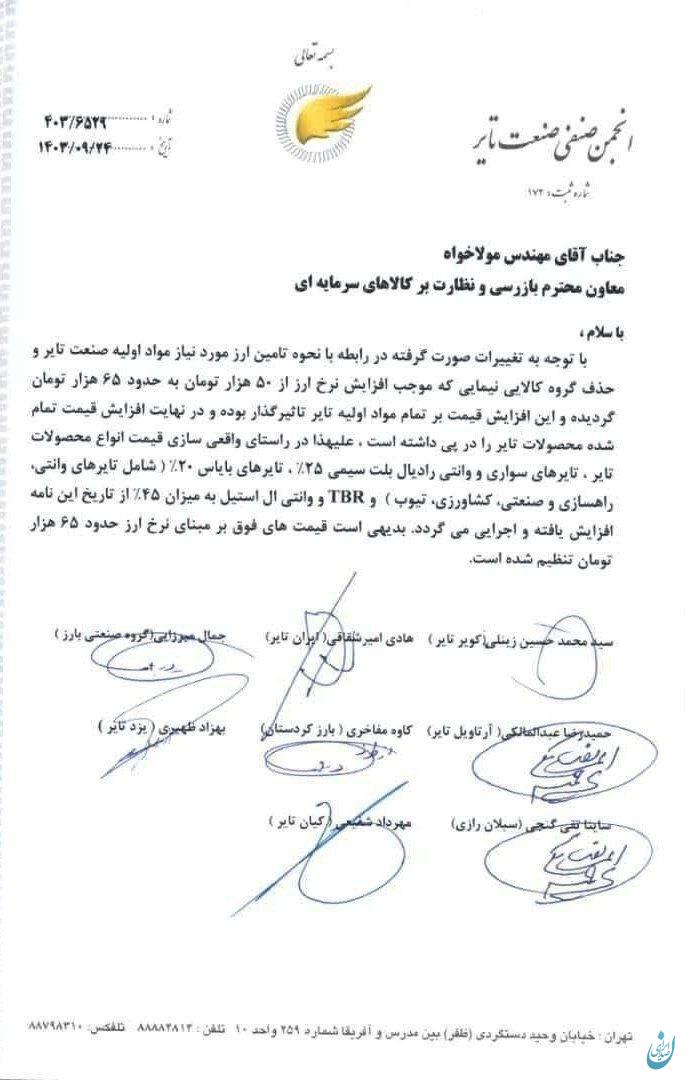 بسمه تعالی
انجمن صنفی صنعت تایر
شماره ثبت: ۱۷۲
شماره: ۴۰۳/۶۵۲۹
تاریخ: ۱۴۰۳/۰۹/۲۴
جناب آقای مهندس مولاخواه
معاون محترم بازرسی و نظارت بر کالاهای سرمایه ای
با سلام ،
با توجه به تغییرات صورت گرفته در رابطه با نحوه تامین ارز مورد نیاز مواد اولیه صنعت تایر و
حذف گروه کالایی نیمایی که موجب افزایش نرخ ارز از ۵۰ هزار تومان به حدود ۶۵ هزار تومان
گردیده و این افزایش قیمت بر تمام مواد اولیه تایر تاثیرگذار بوده و در نهایت افزایش قیمت تمام
شده محصولات تایر را در پی داشته است ، علیهذا در راستای واقعی سازی قیمت انواع محصولات
تایر ، تایرهای سواری و وانتی رادیال بلت سیمی ۲۵٪ ، تایرهای بایاس ۲۰٪ ( شامل تایرهای وانتی،
راهسازی و صنعتی، کشاورزی، تیوب ) و TBR و وانتی ال استیل به میزان ۴۵٪ از تاریخ این نامه
افزایش یافته و اجرایی می گردد. بدیهی است قیمت های فوق بر مبنای نرخ ارز حدود ۶۵ هزار
تومان تنظیم شده است.
سید محمد حسین زینلی(کویر تایر ) هادی امیرشقاقی( ایران تایر) جمال میرزایی(گروه صنعتی بارز )
حمیدرضا عبدالمالکی( آرتاویل تایر) کاوه مفاخری ( بارز کردستان) بهزاد ظهیری ( یزد تایر )
ساینا نقی گنجی (سبلان رازی) مهرداد شفیعی ( کیان تایر )
تهران : خیابان وحید دستگردی (ظفر) بین مدرس و آفریقا شماره ۲۵۹ واحد ۱۰ تلفن : ۸۸۸۸۴۸۱۴ تلفکس: ۸۸۷۹۸۳۱۰